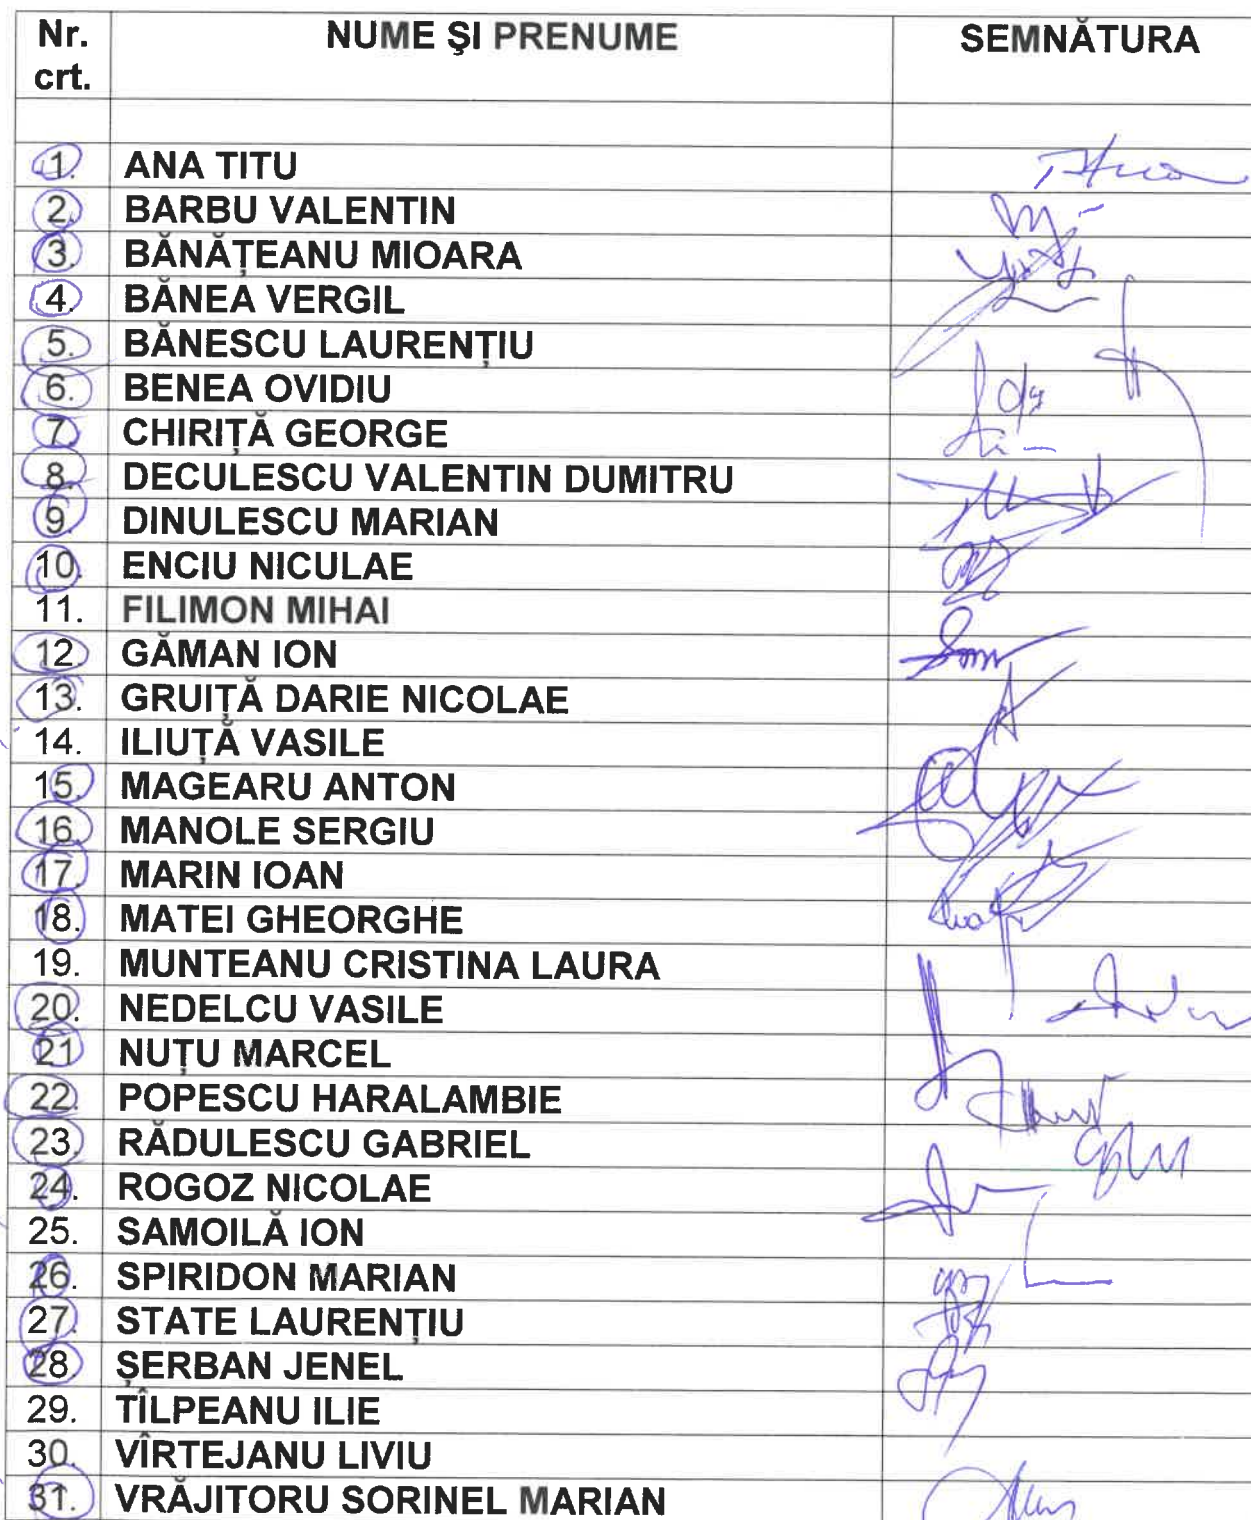 Nr. crt. NUME ŞI PRENUME SEMNĂTURA
1. ANA TITU
2. BARBU VALENTIN
3. BĂNĂȚEANU MIOARA
4. BĂNEA VERGIL
5. BĂNESCU LAURENȚIU
6. BENEA OVIDIU
7. CHIRIȚĂ GEORGE
8. DECULESCU VALENTIN DUMITRU
9. DINULESCU MARIAN
10. ENCIU NICULAE
11. FILIMON MIHAI
12. GĂMAN ION
13. GRUIȚĂ DARIE NICOLAE
14. ILIUȚĂ VASILE
15. MAGEARU ANTON
16. MANOLE SERGIU
17. MARIN IOAN
18. MATEI GHEORGHE
19. MUNTEANU CRISTINA LAURA
20. NEDELCU VASILE
21. NUȚU MARCEL
22. POPESCU HARALAMBIE
23. RĂDULESCU GABRIEL
24. ROGOZ NICOLAE
25. SAMOILĂ ION
26. SPIRIDON MARIAN
27. STATE LAURENȚIU
28. ȘERBAN JENEL
29. TÎLPEANU ILIE
30. VÎRTEJANU LIVIU
31. VRĂJITORU SORINEL MARIAN